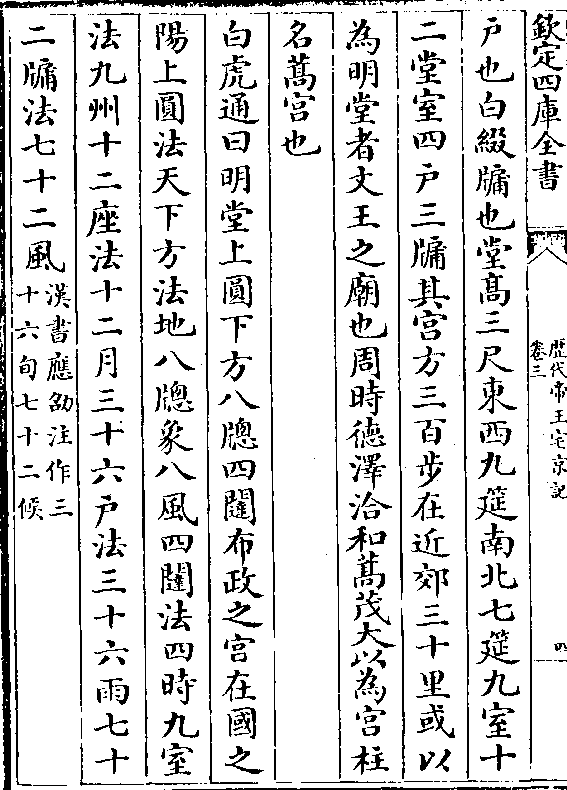 欽定四庫全書
歴代帝王宅京記
卷三
四
户也白綴牖也堂髙三尺東西九筵南北七筵九室十
二堂室四户三牖其宫方三百步在近郊三十里或以
為明堂者文王之廟也周時德澤洽和蒿茂大以為宫柱
名蒿宫也
白虎通曰明堂上圓下方八牕四闥布政之宫在國之
陽上圓法天下方法地八牕象八風四闥法四時九室
法九州十二座法十二月三十六户法三十六雨七十
二牖法七十二風
漢書應劭注作三
十六旬七十二候